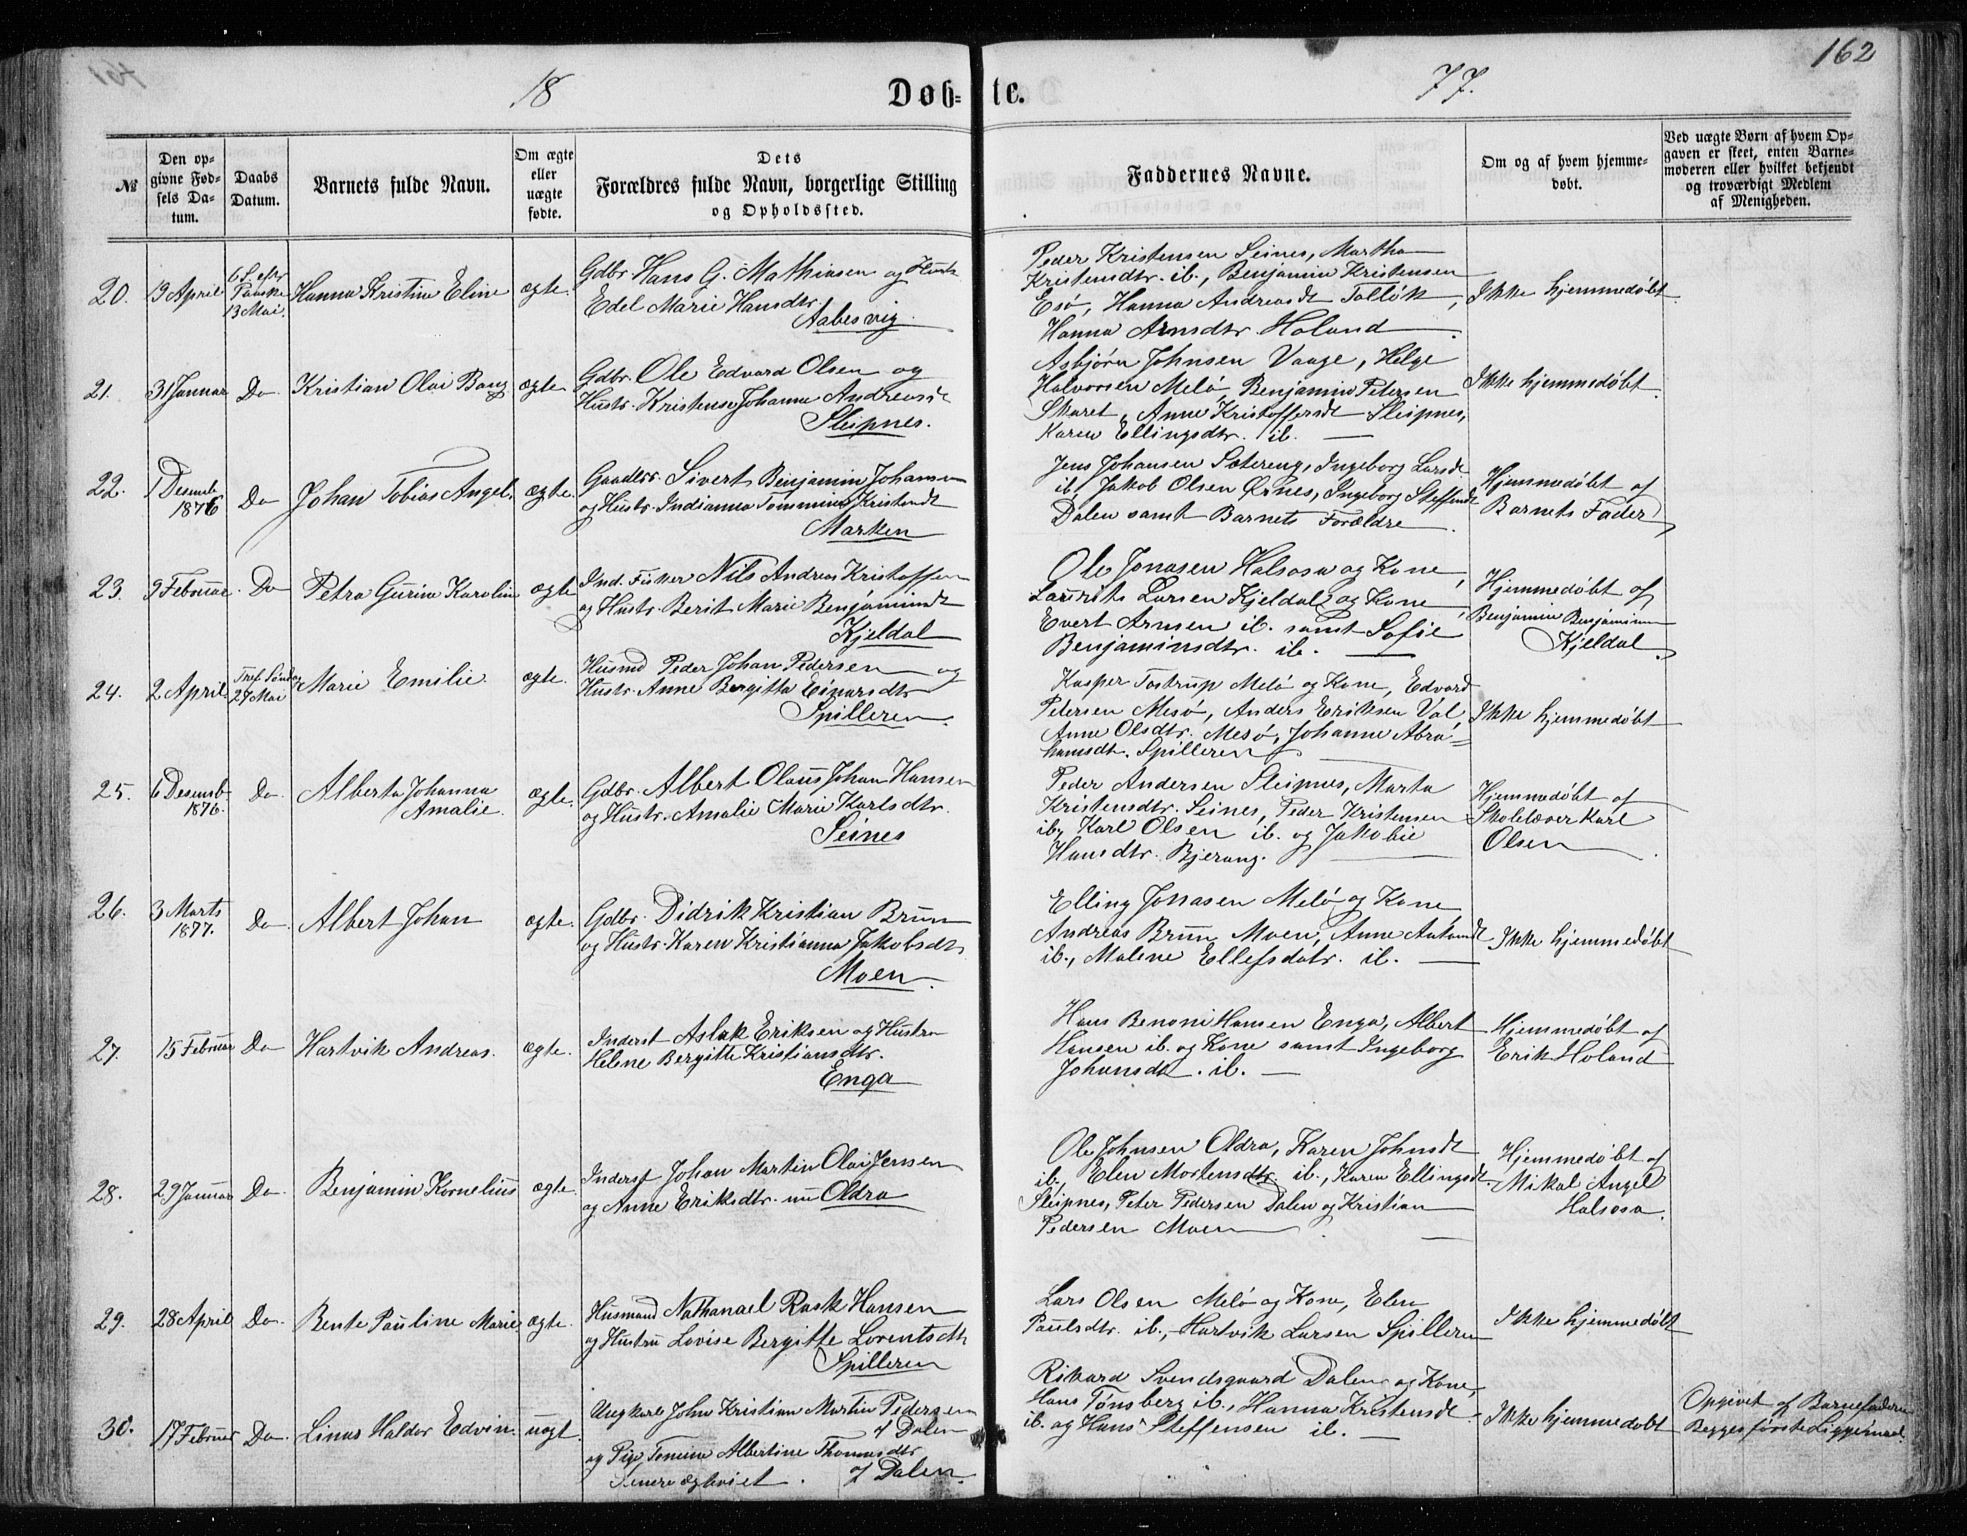 162
18 Døb= te. 77.
№
Den op=
givne Fød=
sels Da=
tum.
Daabs
Datum.
Barnets fulde Navn.
Om ægte
eller
uægte
fødte.
Dets
Forældres fulde Navn, borgerlige Stilling
og Opholdssted.
Faddernes Navne.
Om og af hvem hjemme=
døbt.
Ved uægte Børn af hvem Op=
gaven er skeet, enten Barne=
moderen eller hvilket bekjendt
og troværdigt Medlem
af Menigheden.
20.
13 April
6 S. efter
Paaske
13 Mai.
Hanna Kristine Eline
ægte.
Gdbr Hans G. Mathiasen og Hustr
Edel Marie Hansdtr.
Aabesvig.
Peder Kristensen Seines, Martha
Kristensdtr. ib., Benjamin Kristensen
Esø, Hanna Andreasdt
Hanna Arnsdtr. Holand
Ikke hjemmedøbt
21.
31 Januar
Do
Kristian Olai Bang
ægte.
Gdbr. Ole Edvard Olsen og
Hustr. Kristense Johanna Andreasdt
Sleipnes.
Asbjørn Johnsen Vaage, Helge
Halvorsen Melø, Benjamin Petersen
Skaret, Anne Kristoffersdt Sleipnes,
Karen Ellingsdtr. ib.
Ikke hjemmedøbt.
22.
1 Desemb.
1876
Do
Johan Tobias Angel.
ægte.
Gaardbr. Sivert Benjamin Johansen
og Hustr. Indianna Tommine Kristensdt
Marken
Jens Johansen Sætereng, Ingeborg Larsdt
ib, Jakob Olsen Ørnes, Ingeborg Steffensdt
Dalen samt Barnets Forældre.
Hjemmedøbt af
Barnets Fader
23.
9 Februar.
Do
Petra Gurine Karolin
ægte
Ind. Fisker Nils Andreas Kristoffersen
og Hustr. Berit Marie Benjaminsdt
Kjeldal
Ole Jonasen Halsosa og Kone,
Laurits Larsen Kjeldal og Kone,
Evert Arnsen ib. samt Sofie
Benjaminsdtr. ib.
Hjemmedøbt af
Benjamin Benjaminsen
Kjeldal.
24.
2 April
Tref. Søndag
27 Mai
Marie Emilie
ægte.
Husmd Peder Johan Pedersen og
Hustr. Anne Bergitta Einarsdtr
Spilleren.
Kasper Tostrup Melø og Kone, Edvard
Petersen Mesø, Anders Eriksen Val
Anne Olsdtr. Mesø, Johanne Abra=
hamsdt. Spilleren
Ikke hjemmedøbt
25.
6 Desemb.
1876.
Do
Alberta Johanna
Amalie.
ægte.
Gdbr. Albert Olaus Johan Hansen
og Hustr. Amalie Marie Karlsdtr.
Seines
Peder Andersen Sleipnes, Marta
Kristensdtr. Seines, Peder Kristensen
ib, Karl Olsen ib. og Jakobie
Hansdtr. Bjerang.
Hjemmedøbt af
Skolelærer Karl
Olsen.
26.
3 Marts
1877.
Do
Albert Johan
ægte.
Gdbr. Didrik Kristian Brun
og Hustr. Karen Kristianna Jakobsdt.
Moen.
Elling Jonasen Melø og Kone
Andreas Brun Moen, Anne
ib., Malene Ellefsdatr. ib.
Ikke hjemmedøbt
27.
15 Februar
Do
Hartvik Andreas.
ægte.
Inderst Aslak Eriksen og Hustru
Helene Bergitte Kristiansdtr.
Enga
Hans Benoni Hansen Enga, Albert
Hansen ib. og Kone samt Ingeborg
Johansdt. ib.
Hjemmedøbt af
Erik Holand
28.
29 Januar
Do
Benjamin Kornelius
ægte
Inderst Johan Martin Olai Jensen
og Anne Eriksdtr. Oldra
Ole Johnsen Oldra, Karen Johnsdt
ib., Elen Mortensdtr. ib., Karen Ellingsdt.
Sleipnes, Peter Pedersen Dalen og Kristian
Pedersen Moen.
Hjemmedøbt af
Mikal Angel
Halsosa.
29.
28 April
Do.
Bente Pauline Marie
ægte.
Husmand Nathanael Rask Hansen
og Hustru Lovise Bergitte Lorentsdtr
Spilleren
Lars Olsen Melø og Kone, Elen
Paulsdtr. ib., Hartvik Larsen Spilleren
Ikke hjemmedøbt
30.
17 Februar
Do.
Linus Haldor Edvin.
uægt.
Ungkarl John Kristian Martin Pedersen
af Dalen
og Pige Tomine Albertine Thomasdtr
Senere ægteviet. af Dalen.
Rikard Svendsgaard Dalen og Kone,
Hans Tønsberg ib., Hanna Kristensdt
ib. og Hans Steffensen ib.
Ikke hjemmedøbt
Opgivet af Barnefaderen
Begges første Leiermaal.